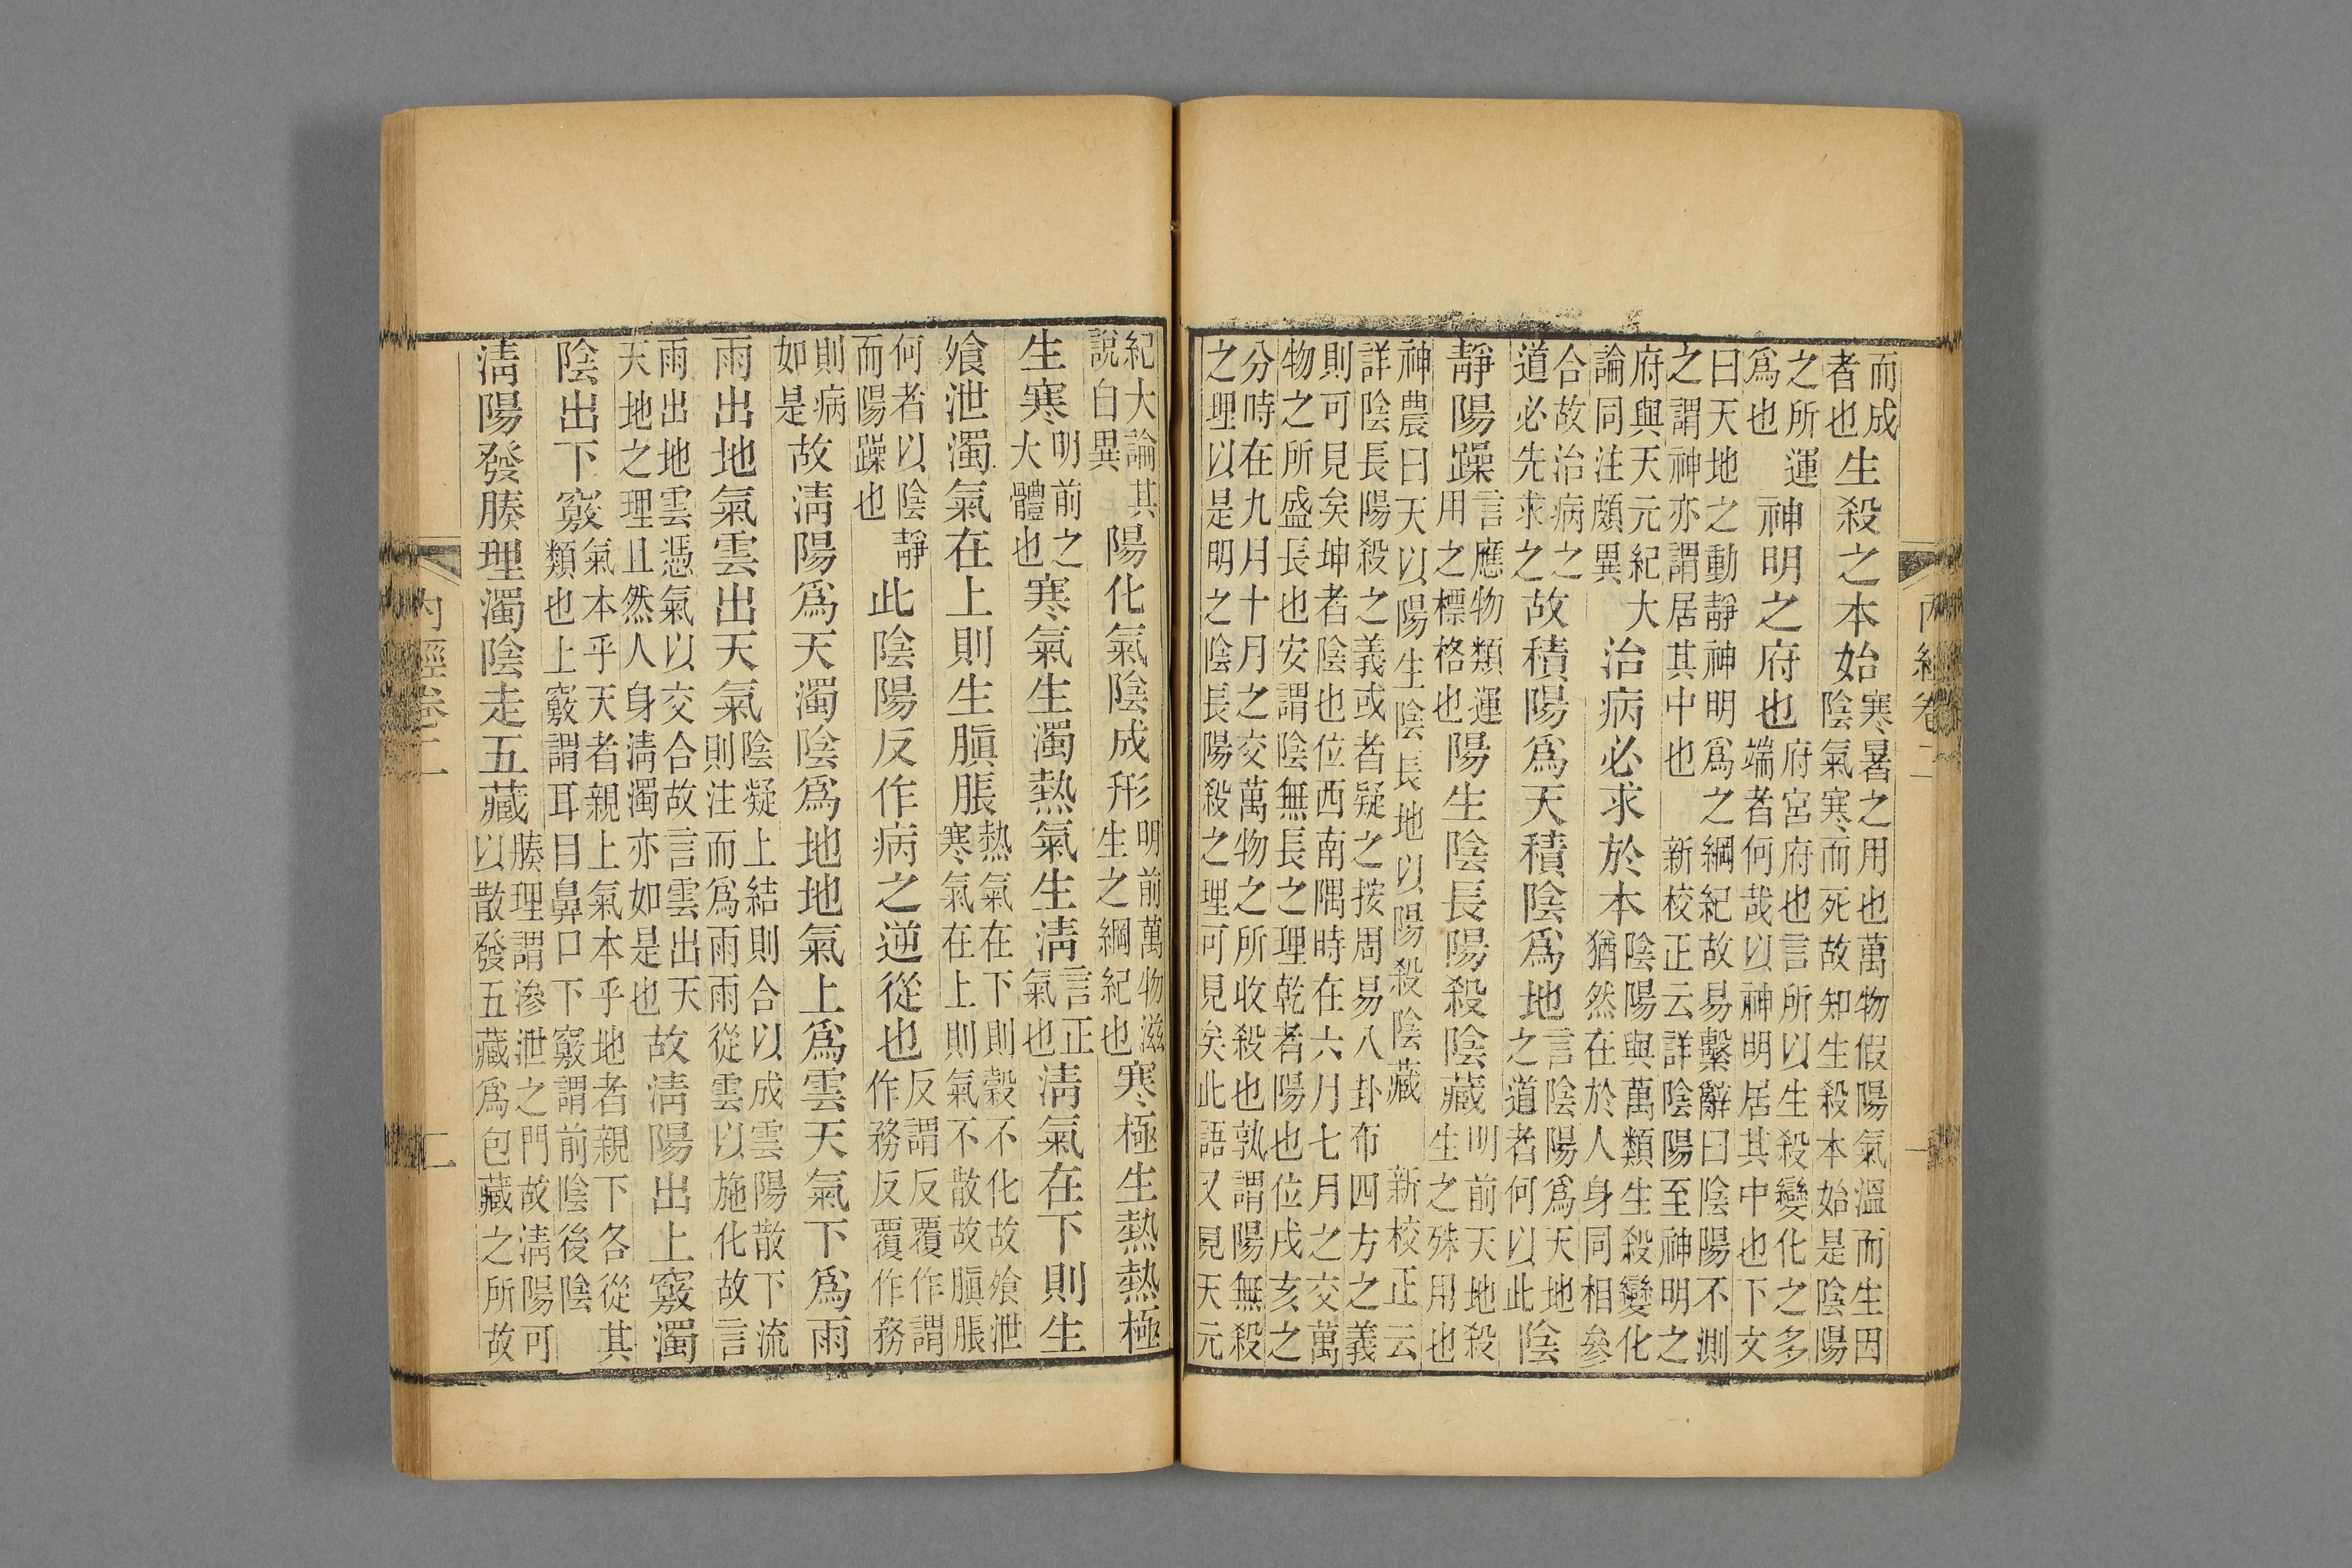 內經卷二
一
而成者也生殺之本始寒暑之用也萬物假陽氣溫而生因陰氣寒而死故知生殺本始是陰陽
之所運爲也神明之府也府宮府也言所以生殺變化之多端者何哉以神明居其中也下文
曰天地之動靜神明爲之綱紀故易繫辭曰陰陽不測之謂神亦謂居其中也新校正云詳陰陽至神明之
府與天元紀大論同注頗異治病必求於本陰陽與萬類生殺變化猶然在於人身同相參
合故治病之道必先求之故積陽爲天積陰爲地言陰陽爲天地之道者何以此陰
靜陽躁言應物類運用之標格也陽生陰長陽殺陰藏明前天地殺生之殊用也
神農曰天以陽生陰長地以陽殺陰藏新校正云詳陰長陽殺之義或者疑之按周易八卦布四方之義
則可見矣坤者陰也位西南隅時在六月七月之交萬物之所盛長也安謂陰無長之理乾者陽也位戌亥之
分時在九月十月之交萬物之所收殺也孰謂陽無殺之理以是明之陰長陽殺之理可見矣此語又見天元
紀大論其說自異陽化氣陰成形明前萬物滋生之綱紀也寒極生熱熱極
生寒明前之大體也寒氣生濁熱氣生淸言正氣也淸氣在下則生
飱泄濁氣在上則生䐜脹熱氣在下則穀不化故飱泄寒氣在上則氣不散故䐜脹
何者以陰靜而陽躁也此陰陽反作病之逆從也反謂反覆作謂作務反覆作務
則病如是故淸陽爲天濁陰爲地地氣上爲雲天氣下爲雨
雨出地氣雲出天氣陰凝上結則合以成雲陽散下流則注而爲雨雨從雲以施化故言
雨出地雲憑氣以交合故言雲出天天地之理且然人身淸濁亦如是也故淸陽出上竅濁
陰出下竅氣本乎天者親上氣本乎地者親下各從其類也上竅謂耳目鼻口下竅謂前陰後陰
淸陽發腠理濁陰走五藏腠理謂滲泄之門故淸陽可以散發五藏爲包藏之所故
內經卷二
二